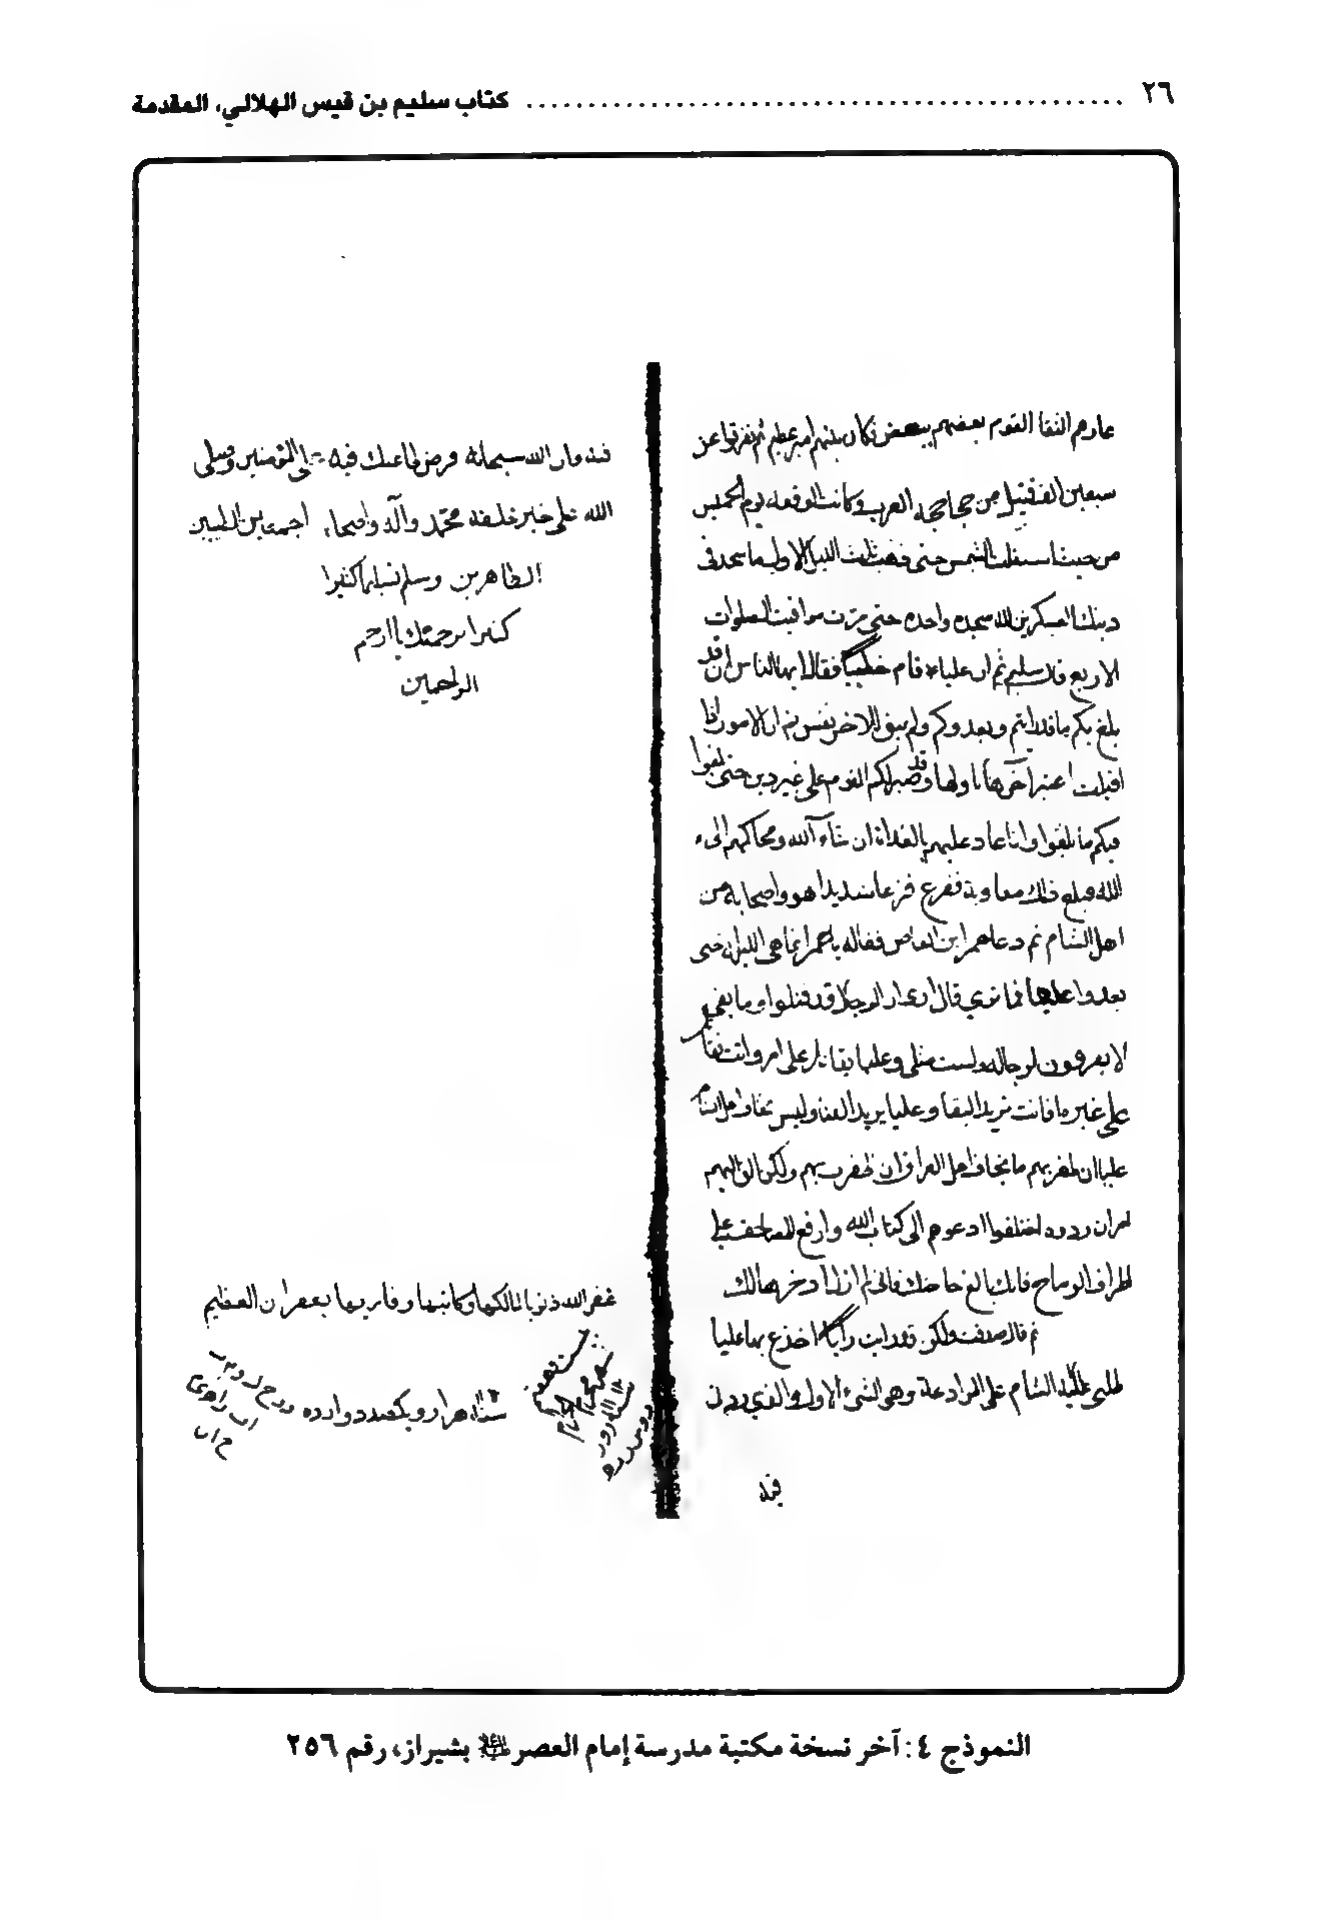 ٢٦ ........ كتاب سليم بن قيس الهلالي، المقدمة
القوم بعضهم ببعض فكان بينهم امر عظيم ثم تفرقوا عن
سبعين الف قتيل من جحاجحة العرب وكانت الوقعة يوم الخميس
من حيث استقلت الشمس حتى ذهب ثلث الليل الاول ما سجد في
العسكرين لله سجدة واحدة حتى مرت مواقيت الصلوات
الاربع قال سليم ثم ان عليا قام خطيبا فقال ايها الناس ان قد
بلغ بكم ما قد رايتم وبعدوكم ولم يبق الا اخر نفس ثم ان الامور اذا
اقبلت اعتبر آخرها باولها وقد صبر لكم القوم على غير دين حتى بلغوا
فيكم ما بلغوا وانا عاد عليهم بالغداة ان شآء الله ومحاكمهم الى
الله فبلغ ذلك معاوية ففزع فزعا شديدا هو واصحابه من
اهل الشام ثم دعا عمرو ابن العاص فقال له يا عمرو انما هي الليل حتى
يغدوا علينا فما ترى قال ارى ان الرجال قد قتلوا وما بقي
لا يعرفون لرجاله ولست مثله وعليا يقاتل على امر وانت تقاتل
على غيره فانت تريد البقا وعليا يريد الفنا وليس تخاف اهل الشام
عليا ان ظفر بهم ما تخاف اهل العراق ان ظفرت بهم ولكن الق اليهم
اختلفوا ادعوهم الى كتاب الله وارفع المصاحف على
اطراف الرماح فانك بالغ حاجتك فاني لم ازل ادخرها لك
ثم قال صدقت ولكن قد رايت رايا اخدع بها عليا
طلبي اليه الشام على الموادعة وهي الشيء الاول والذي
الله سبحانه فرض طاعتك فيه على المؤمنين وصلى
الله على خير خلقه محمد وآله واصحابه اجمعين الطيبين
الطاهرين وسلم تسليما كثيرا
كثيرا برحمتك يا ارحم
الراحمين
غفر الله ذنوب مالكها وكاتبها وقاريها بغفران العظيم
النموذج ٤: آخر نسخة مكتبة مدرسة إمام العصر بشيراز، رقم ٢٥٦